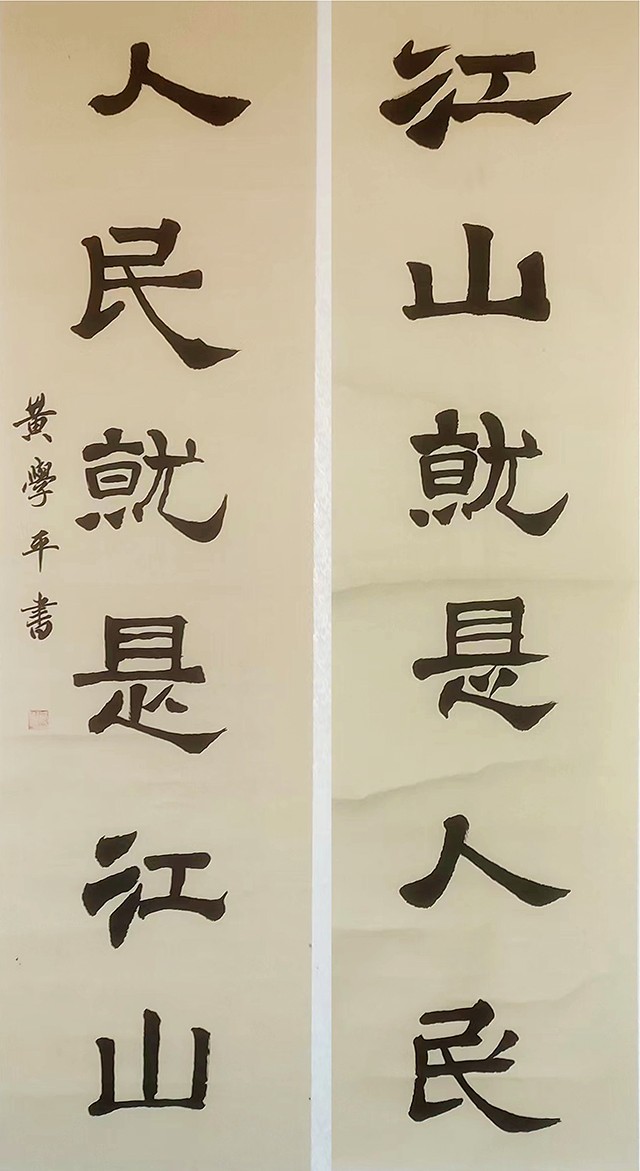 江山就是人民
人民就是江山
黄學平書